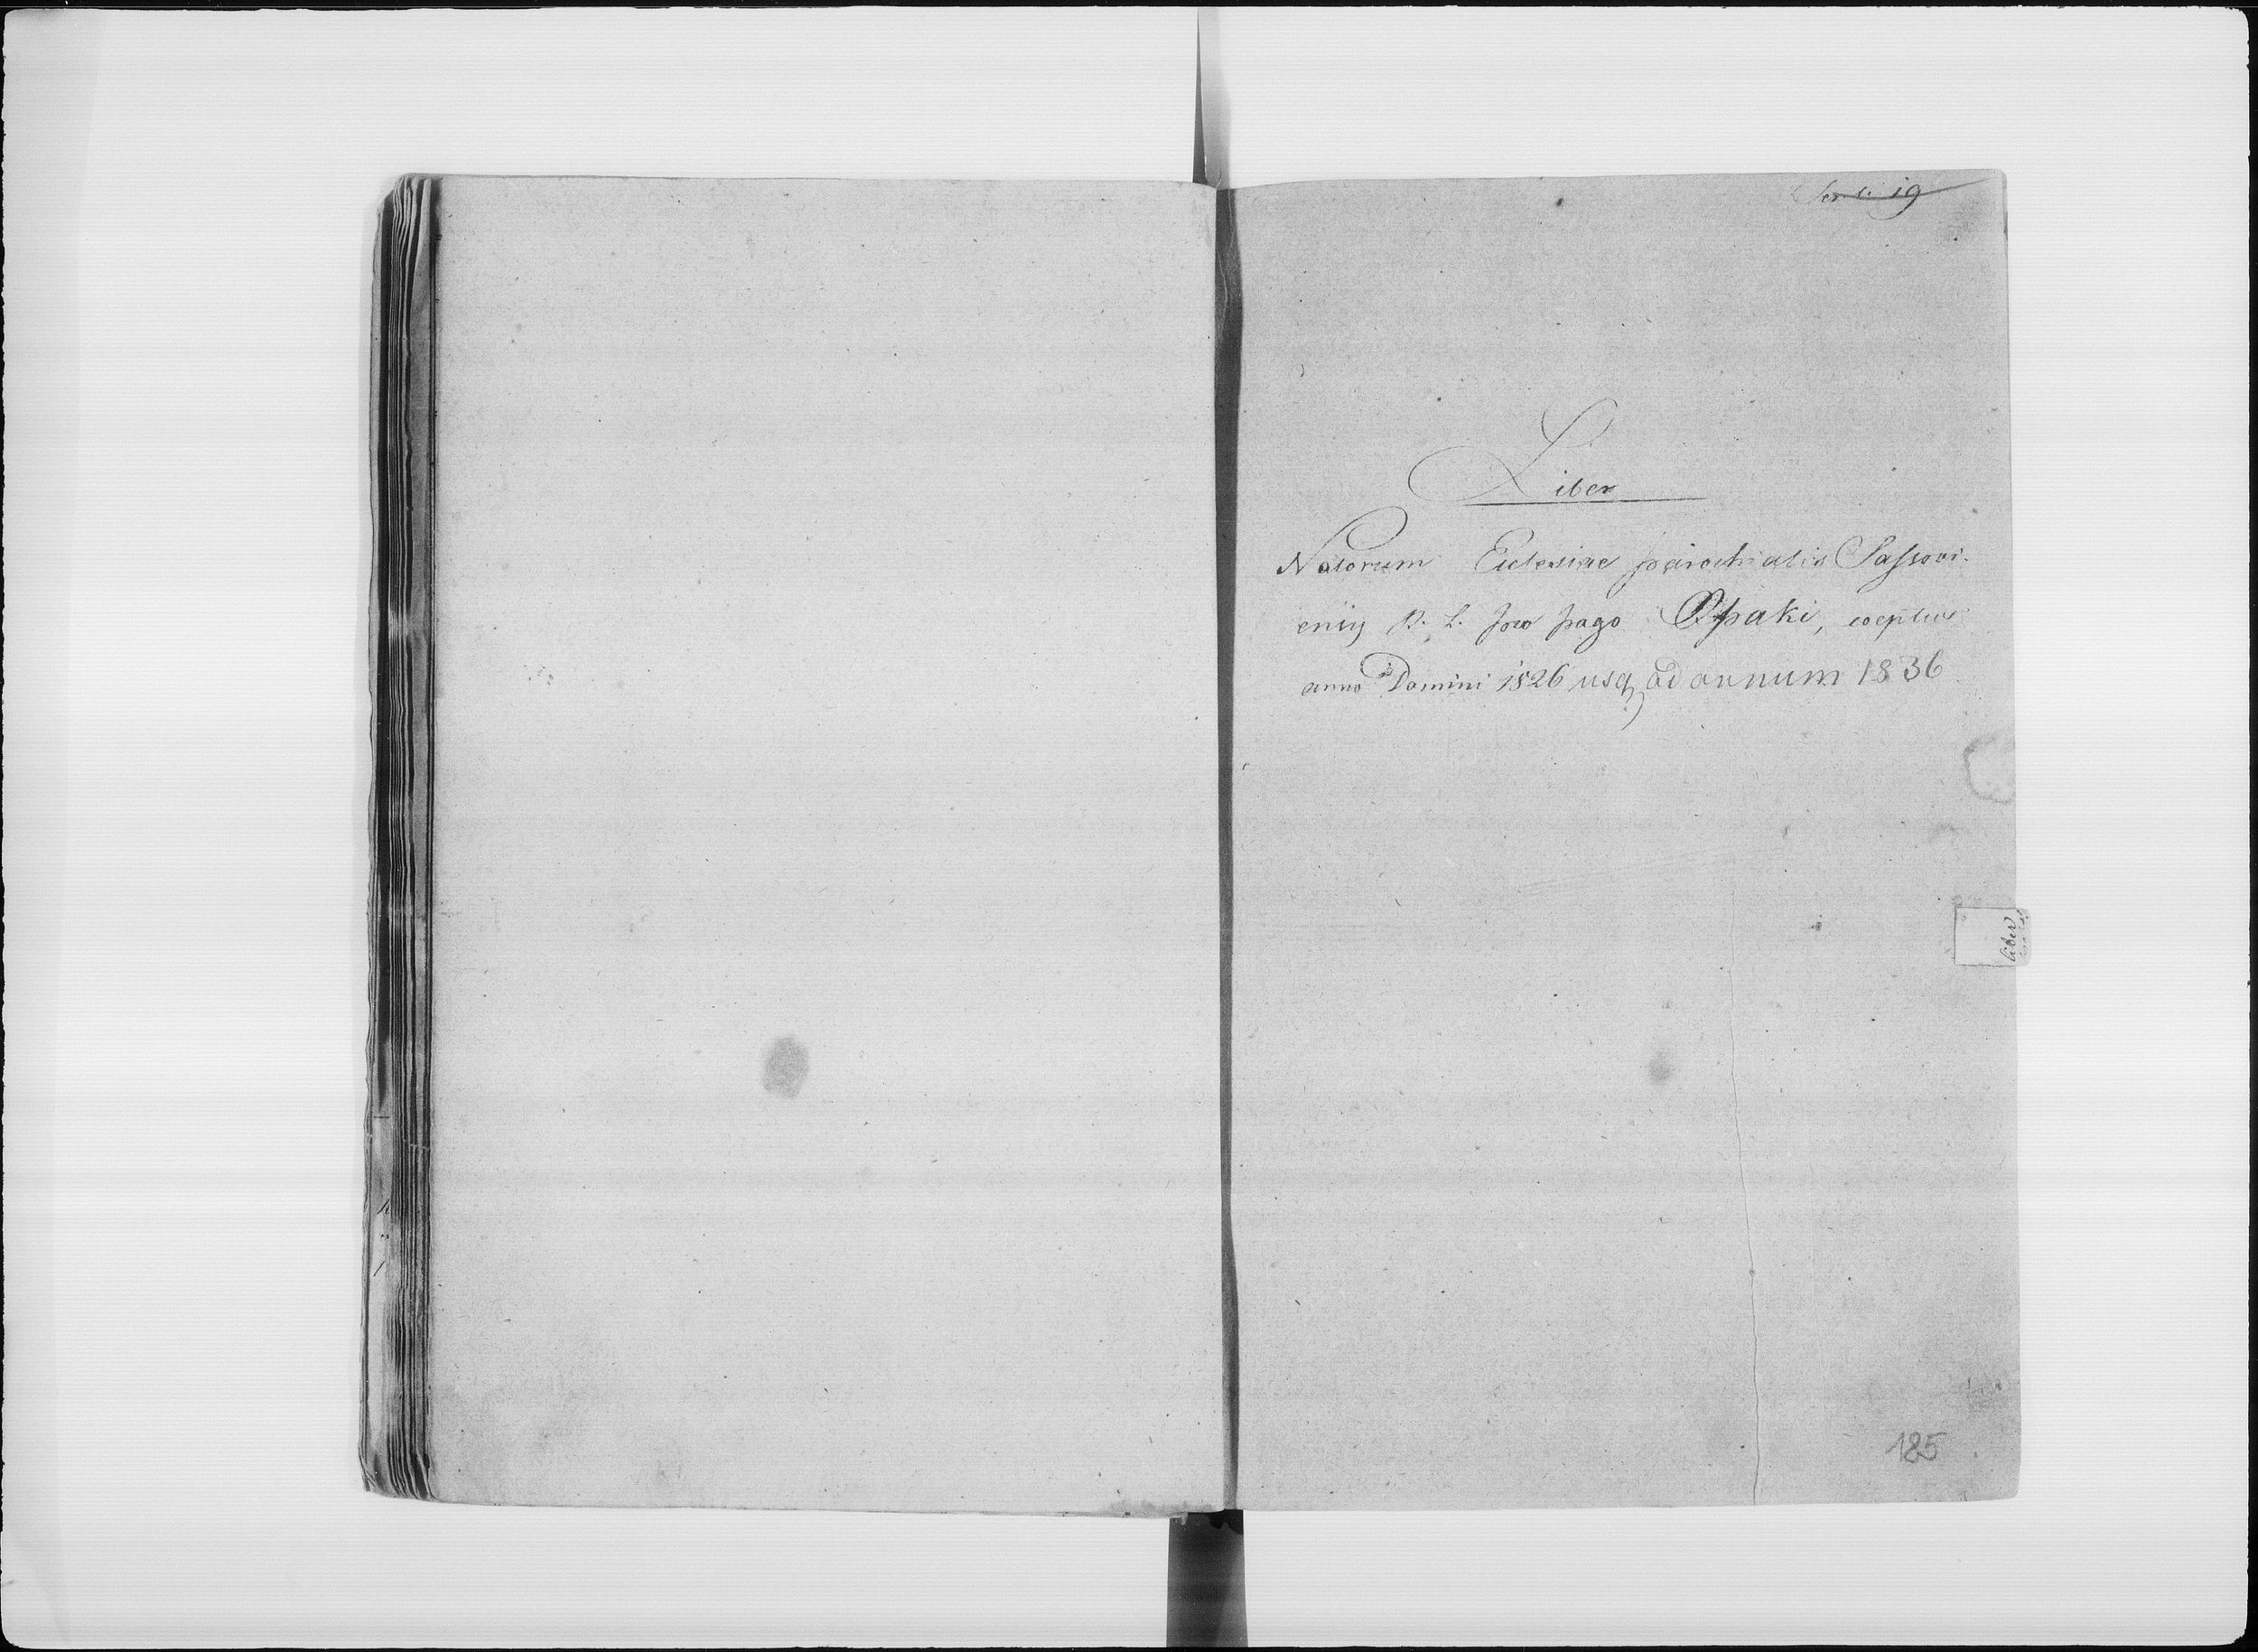 19
Liber
Natorum Eclesiae parochialis Sassovi-
ensis R. L. pro pago Opaki, coeptus
anno Domini 1826 usq ad annum 1836
liber
185